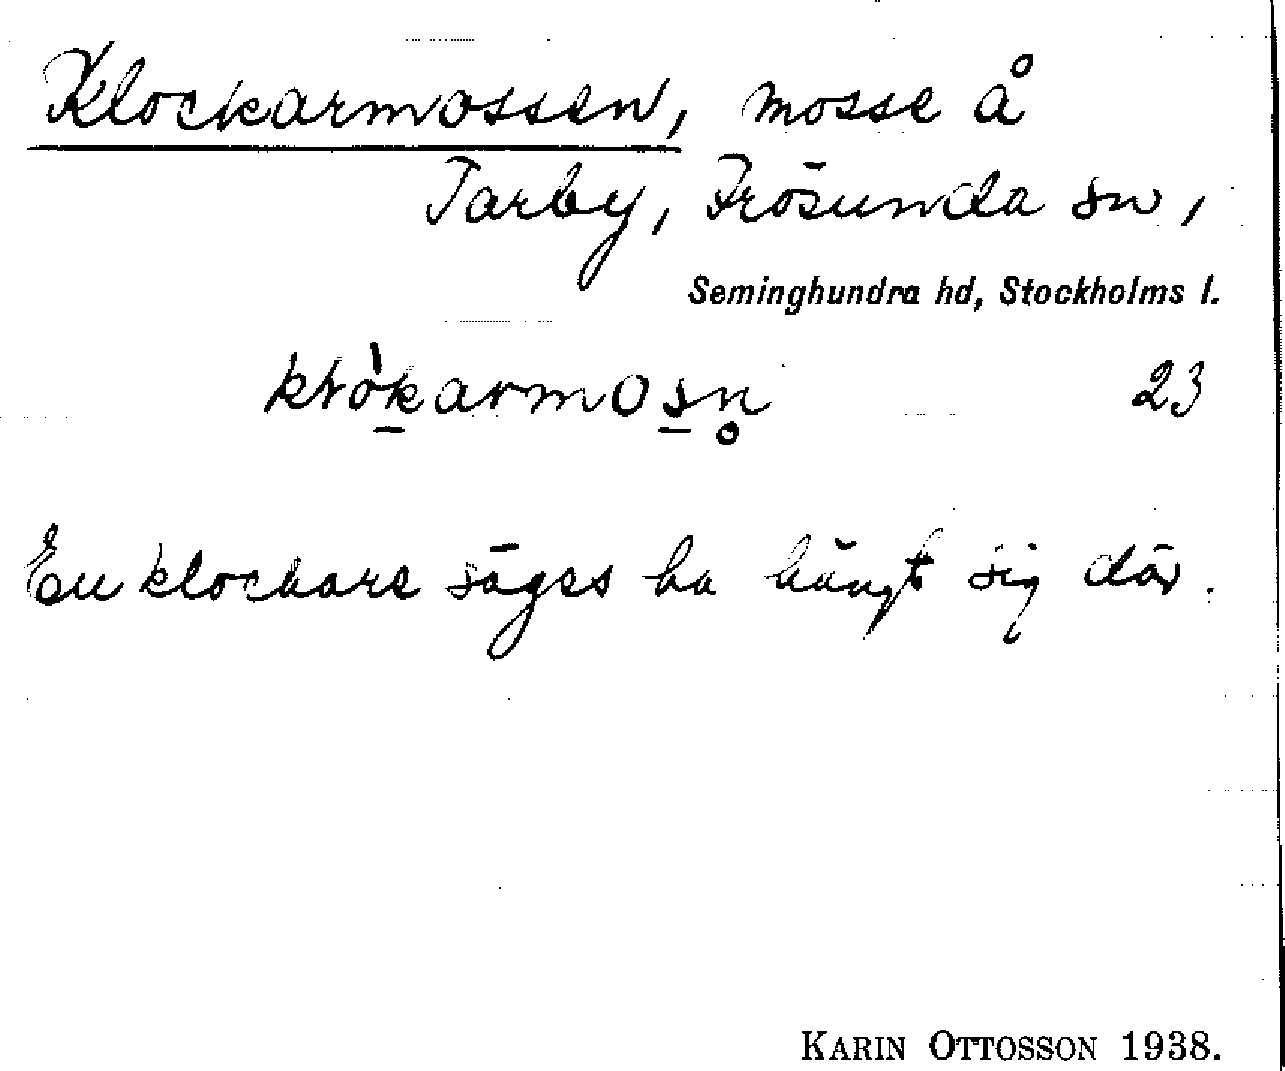 Klockarmossen, mosse å
Tarby, Frösunda sn,
Seminghundra hd, Stockholms l.
klòk̲armos̲n̥ 23
En klockare säges ha hängt sig där.
KARIN OTTOSSON 1938.